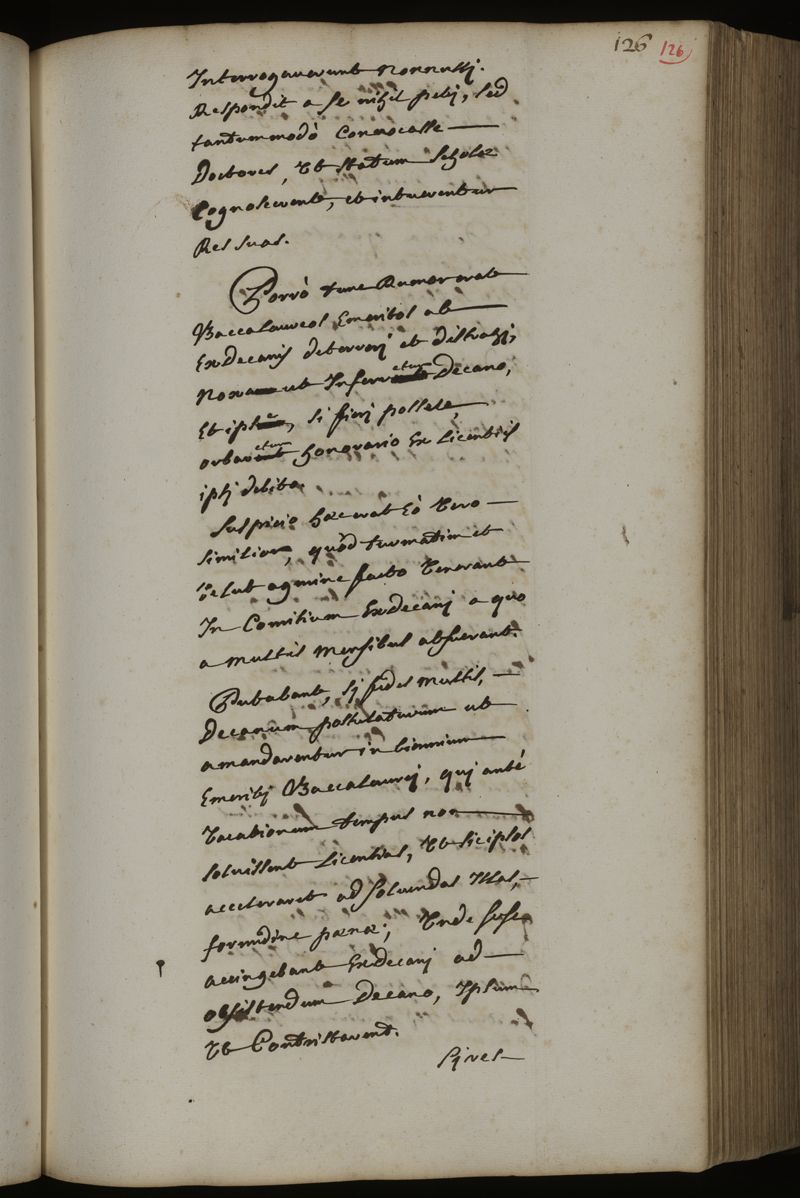 126 126
Interrogaverunt nonnulli.
Respondit a se nihil peti, sed
tantummodò convocasse
Doctores, ut statum scholæ
cognoscerent, et intuerentur
Res suas.
Porrò tunc Rumor erat
Baccalaureos Emeritos ab
ExDecanis deterreri et distrahi,
ut Inferretur Decano,
Et, si fieri posset,
orbaretur honorario Ex Licentiis
ipsi debito.
Suspicio hæc erat Eò Vero
similior, quòd turmatim et
velut agmine facto Venerant
In Comitium ExDecani a quo
a multis mensibus abfuerant.
Putabant, si fides multis,
Decanum postulaturum ut
amandarentur in biennium
Emeriti Baccalaurei, qui antè
Vacationum tempus non
solvissent Licentias, Ut sic ipsos
acceleraret ad solvendas Illas,
formidine pœnæ; Unde sese
accingebant ExDecani ad
obsistendum Decano, Ipsum
Ut Contristarent.
Si res